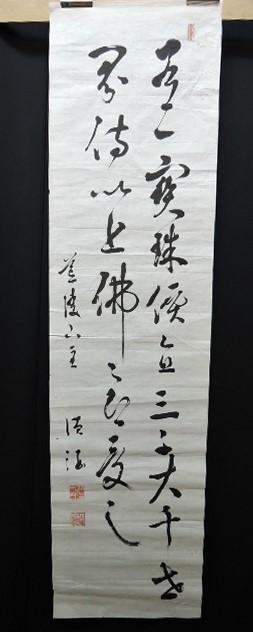 有一寶珠價直三千大千世
界持以上佛々即受之